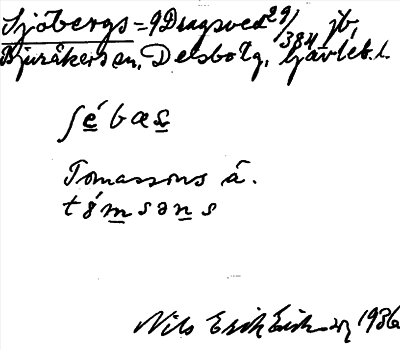 Sjöbergs = 9 Dragsved 29/384 jb,
Bjuråkers sn, Delsbo tg, Gävleb. l.
ʃébæs
Tomassons å.
tǿmsəns
Nils Erik Eriksson 1936